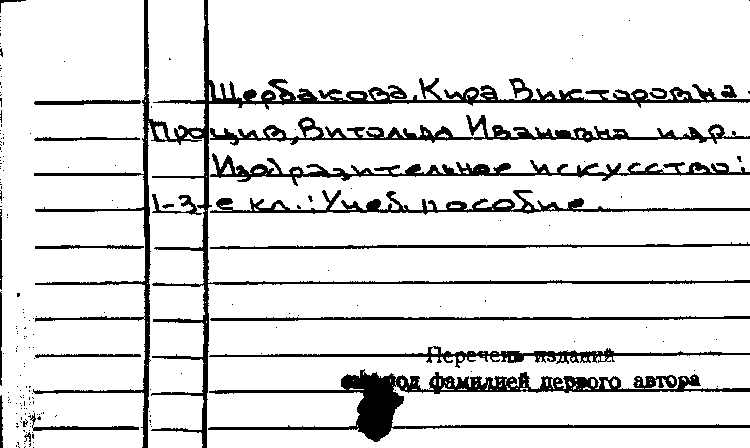 Щербакова, Кира Викторовна.
Прощив, Витольда Ивановна и др.
Изобразительное искусство:
1-3-е кл.: Учеб. пособие.
Перечень изданий
под фамилией первого автора